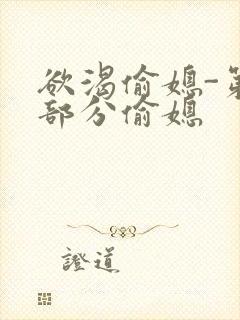 欲渴偷媳-第
部分偷媳
證道